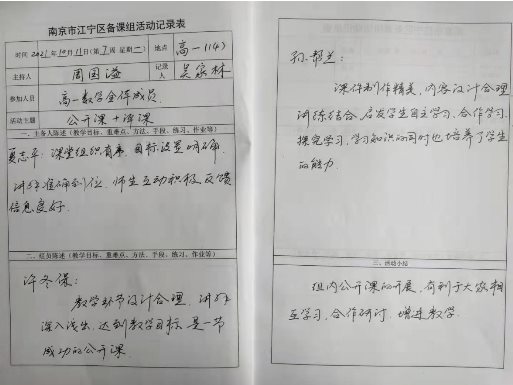 南京市江宁区备课组活动记录表
时间 2021年10月11日(第7周 星期一) 地点 高一(14)
主持人 周国溢 记录人 吴家林
参加人员 高一数学全体成员
活动主题 公开课+评课
一、主备人陈述（教学目标、重难点、方法、手段、练习、作业等）
夏志平：课堂组织有序，目标设置明确
讲练准确到位，师生互动积极，反馈
信息良好.
二、组员陈述（教学目标、重难点、方法、手段、练习、作业等）
许冬保：
教学环节设计合理，讲解
深入浅出，达到教学目标，是一节
成功的公开课.
孙帮兰：
课件制作精美，内容设计合理
讲练结合，启发学生自主学习，合作学习，
探究学习，学习知识的同时也培养了学生
的能力.
三、活动小结
组内公开课的开展，有利于大家相
互学习，合作研讨，增进教学.